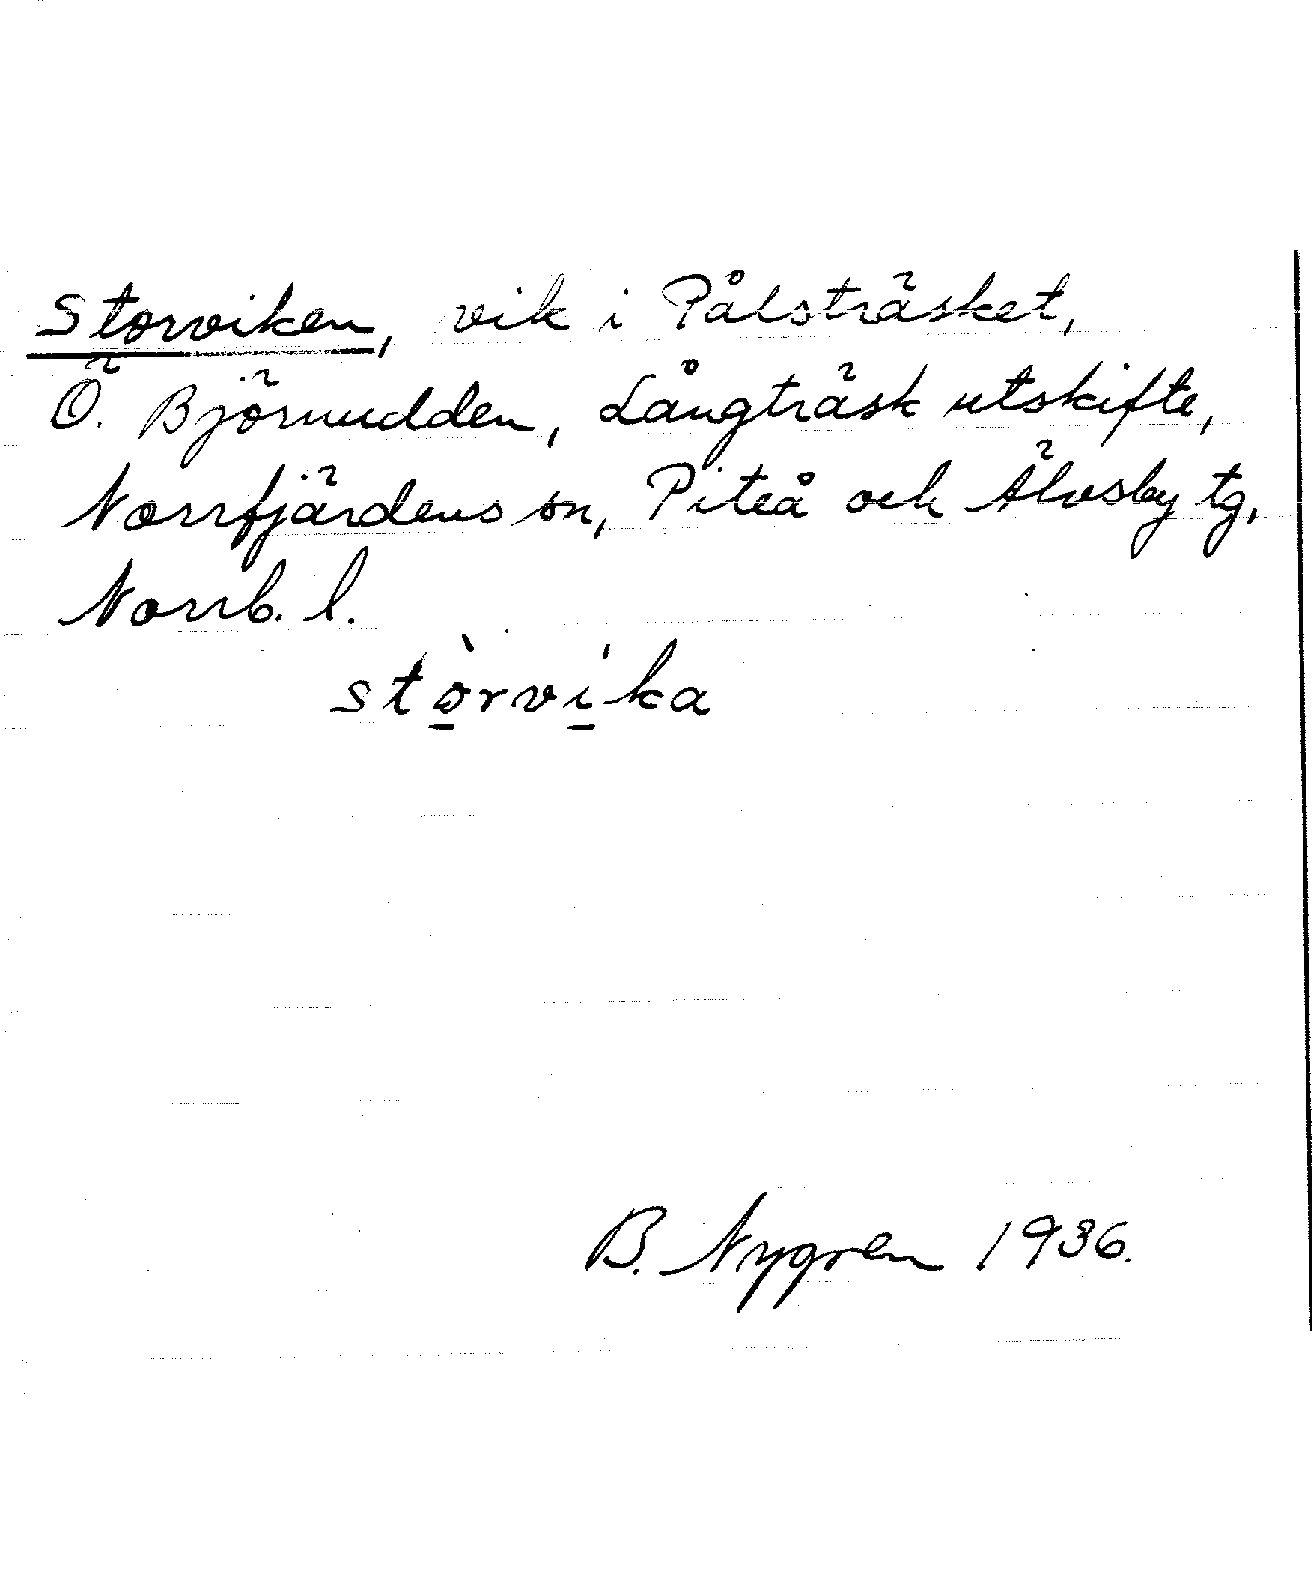 Storviken, vik i Pålsträsket,
Ö. Björnudden, Långträsk utskifte,
Norrfjärdens sn, Piteå och Älvsby tg,
Norrb. l.
stò̱rví̱ka
B. Nygren 1936.